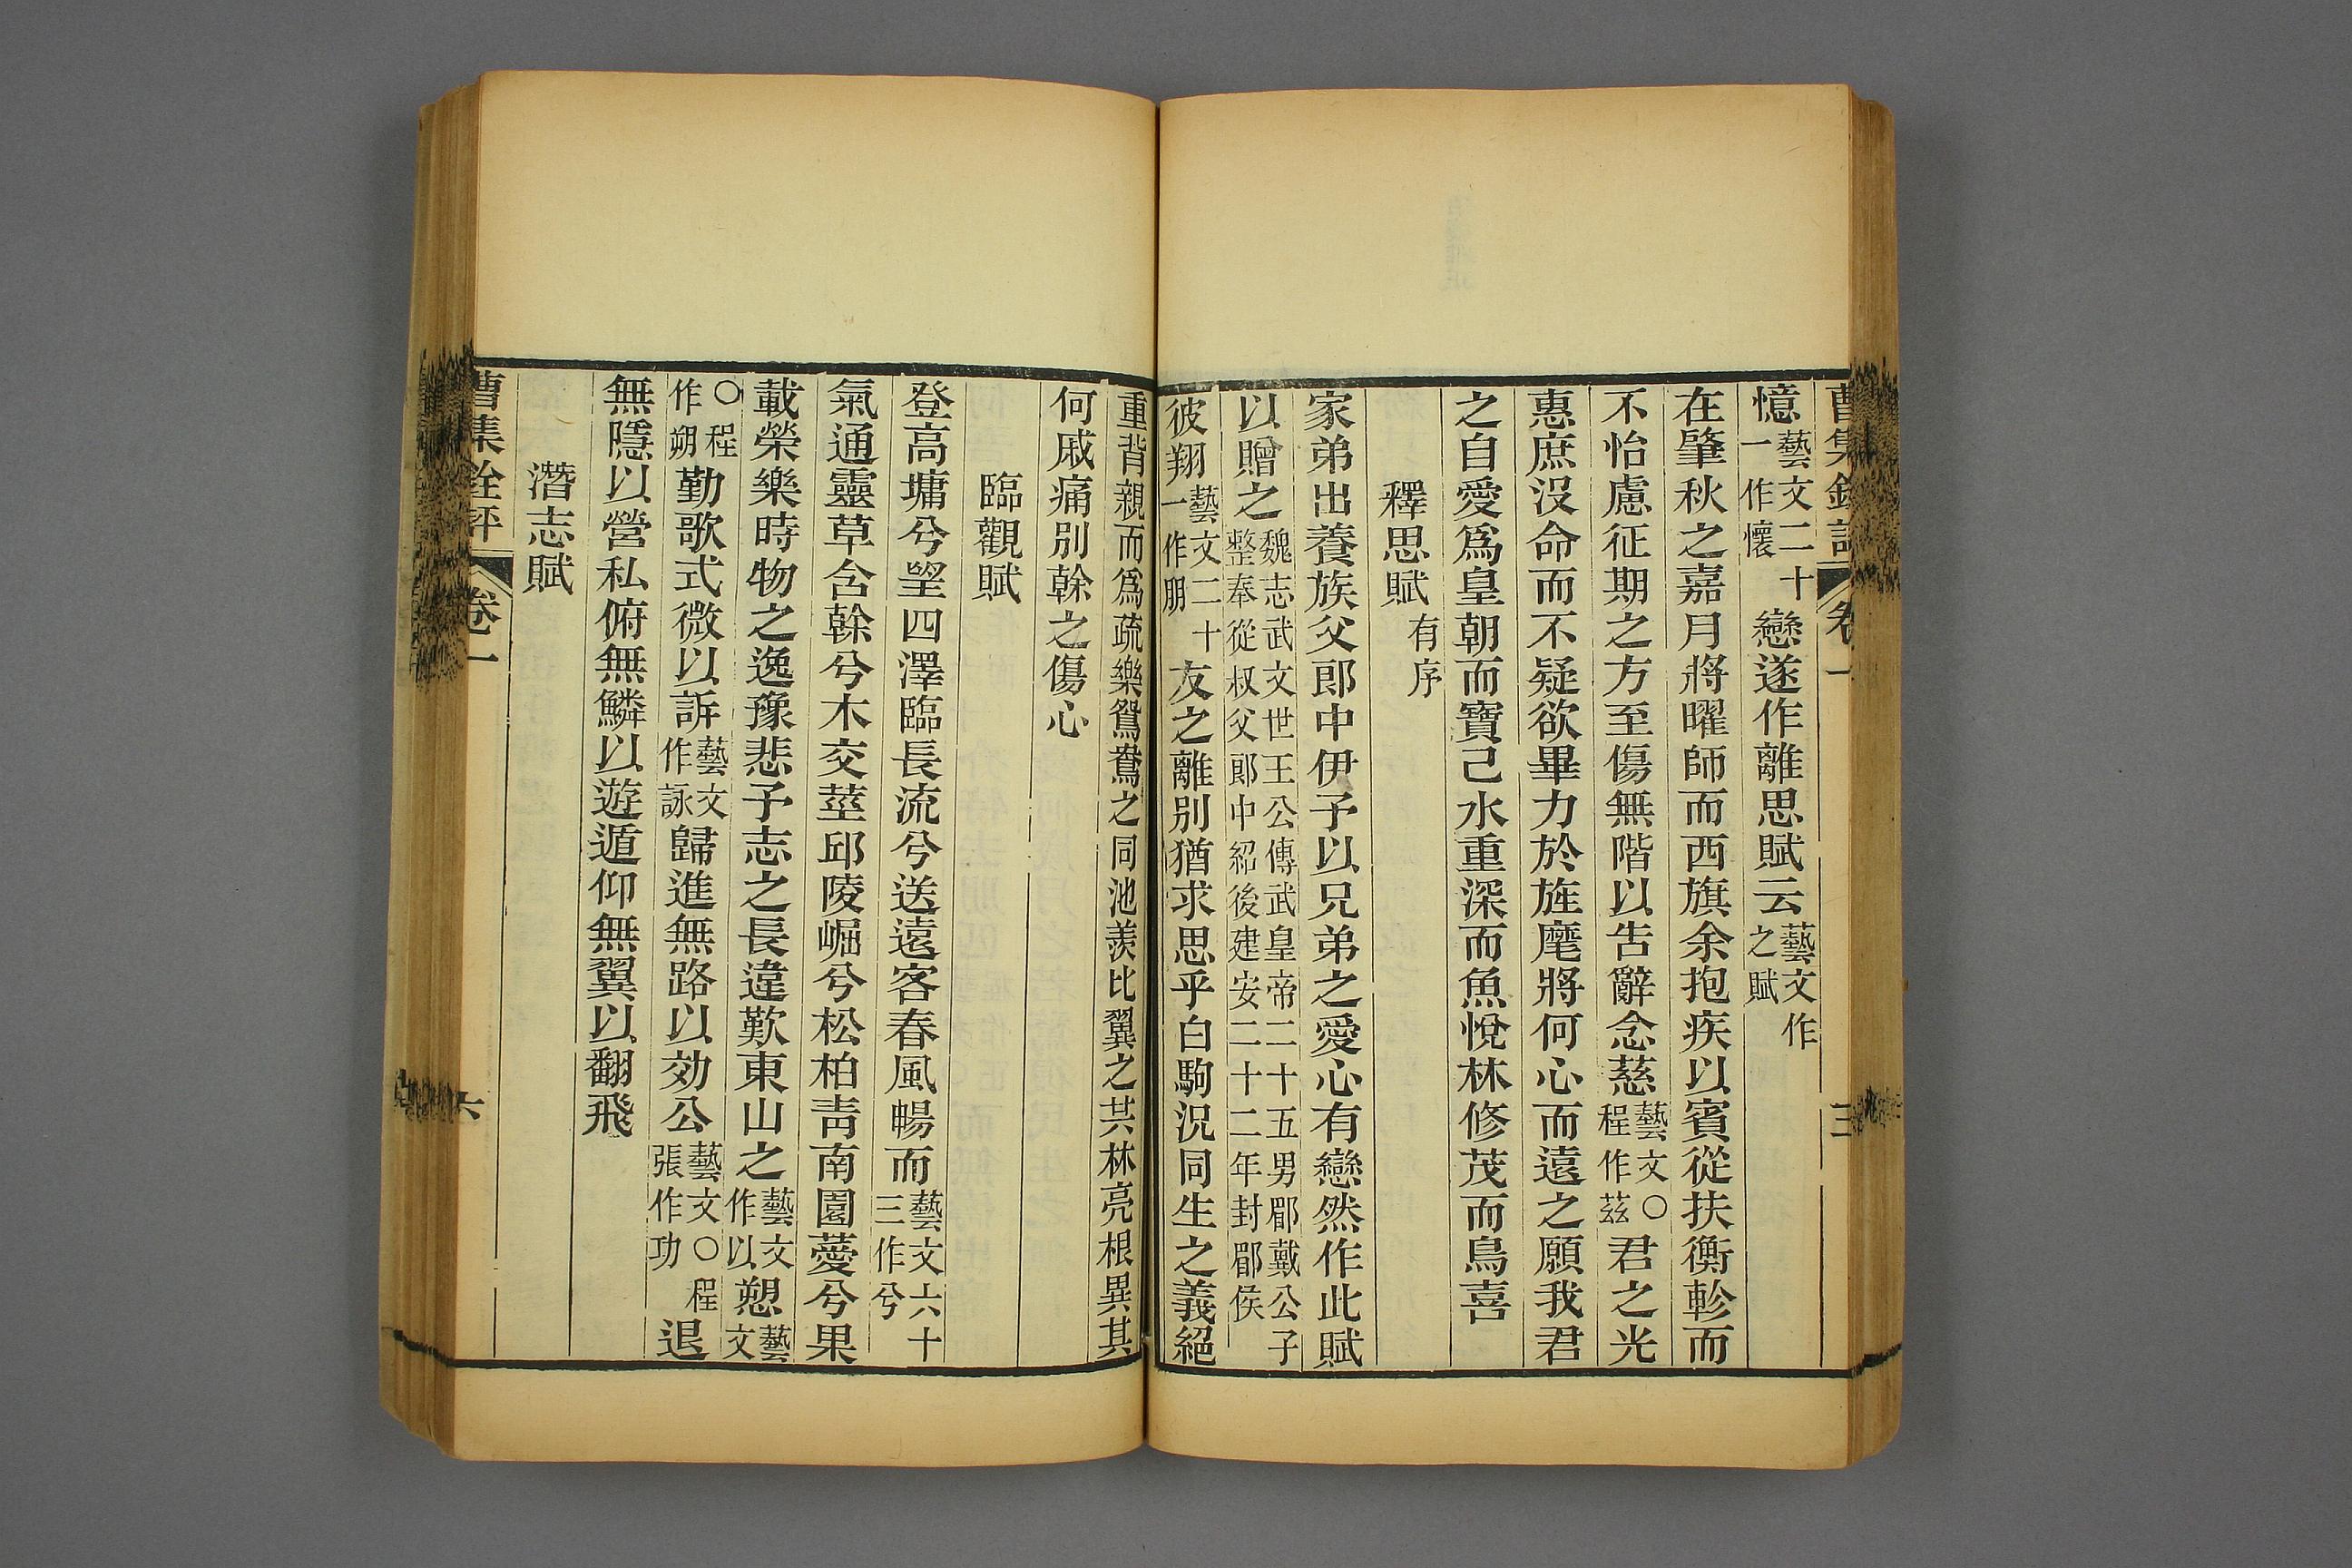 曹集銓評 卷一 三
憶藝文二十一作懷戀遂作離思賦云藝文作之賦
在肇秋之嘉月將曜師而西旗余抱疾以賓從扶衡軫而
不怡慮征期之方至傷無階以告辭念慈藝文○程作茲君之光
惠庶没命而不疑欲畢力於旌麾將何心而遠之願我君
之自愛爲皇朝而寶己水重深而魚悅林修茂而鳥喜
釋思賦有序
家弟出養族父郎中伊予以兄弟之愛心有戀然作此賦
以贈之魏志武文世王公傳武皇帝二十五男郿戴公子整奉從叔父郎中紹後建安二十二年封郿侯
彼翔藝文二十一作朋友之離別猶求思乎白駒況同生之義絕
重背親而爲疏樂鴛鴦之同池羨比翼之共林亮根異其
何戚痛別榦之傷心
臨觀賦
登高墉兮望四澤臨長流兮送遠客春風暢而藝文六十三作兮
氣通靈草含榦兮木交莖邱陵崛兮松柏青南園薆兮果
載榮樂時物之逸豫悲予志之長違歎東山之藝文作以愬藝文
○程作朔勤歌式微以訴藝文作詠歸進無路以効公藝文○程張作功退
無隱以營私俯無鱗以遊遁仰無翼以翻飛
潛志賦
曹集銓評 卷一 六